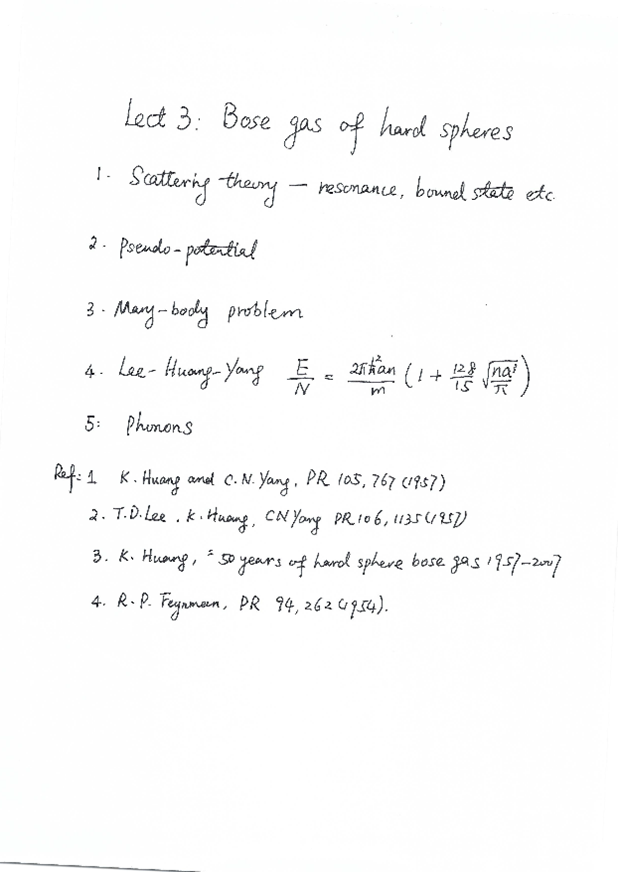 Lect 3: Bose gas of hard spheres
1. Scattering theory — resonance, bound state etc.
2. Pseudo-potential
3. Many-body problem
4. Lee-Huang-Yang E/N = 2πħ²an/m (1 + 128/15 √(na³/π))
5: Phonons
Ref: 1 K. Huang and C.N. Yang, PR 105, 767 (1957)
2. T.D. Lee, K. Huang, CN Yang PR 106, 1135 (1957)
3. K. Huang, "50 years of hard sphere bose gas 1957-2007
4. R.P. Feynman, PR 94, 262 (1954).